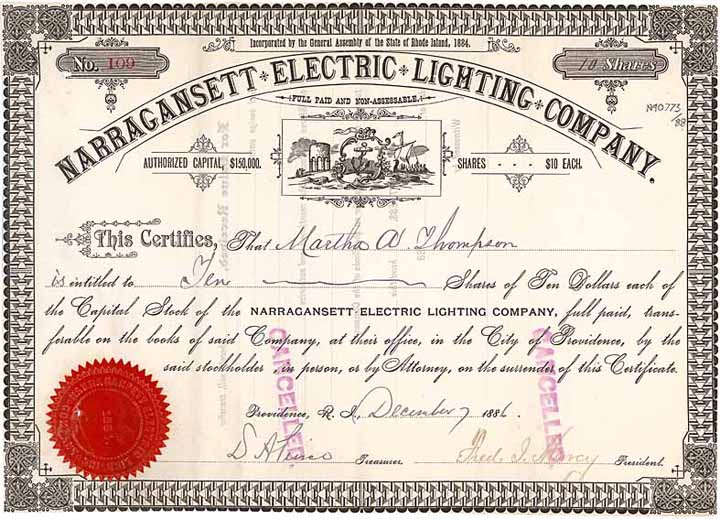 Incorporated by the General Assembly of the State of Rhode Island, 1884.
No. 109
10 Shares
NARRAGANSETT ELECTRIC LIGHTING COMPANY.
FULL PAID AND NON-ASSESSABLE.
AUTHORIZED CAPITAL, $150,000.
SHARES - - - $10 EACH.
This Certifies, That Martha A. Thompson
is entitled to Ten Shares of Ten Dollars each of
the Capital Stock of the NARRAGANSETT ELECTRIC LIGHTING COMPANY, full paid, trans-
ferable on the books of said Company, at their office, in the City of Providence, by the
said stockholder, in person, or by Attorney, on the surrender of this Certificate.
CANCELLED
CANCELLED
Providence, R. I. December 7 1886.
Treasurer.
President.